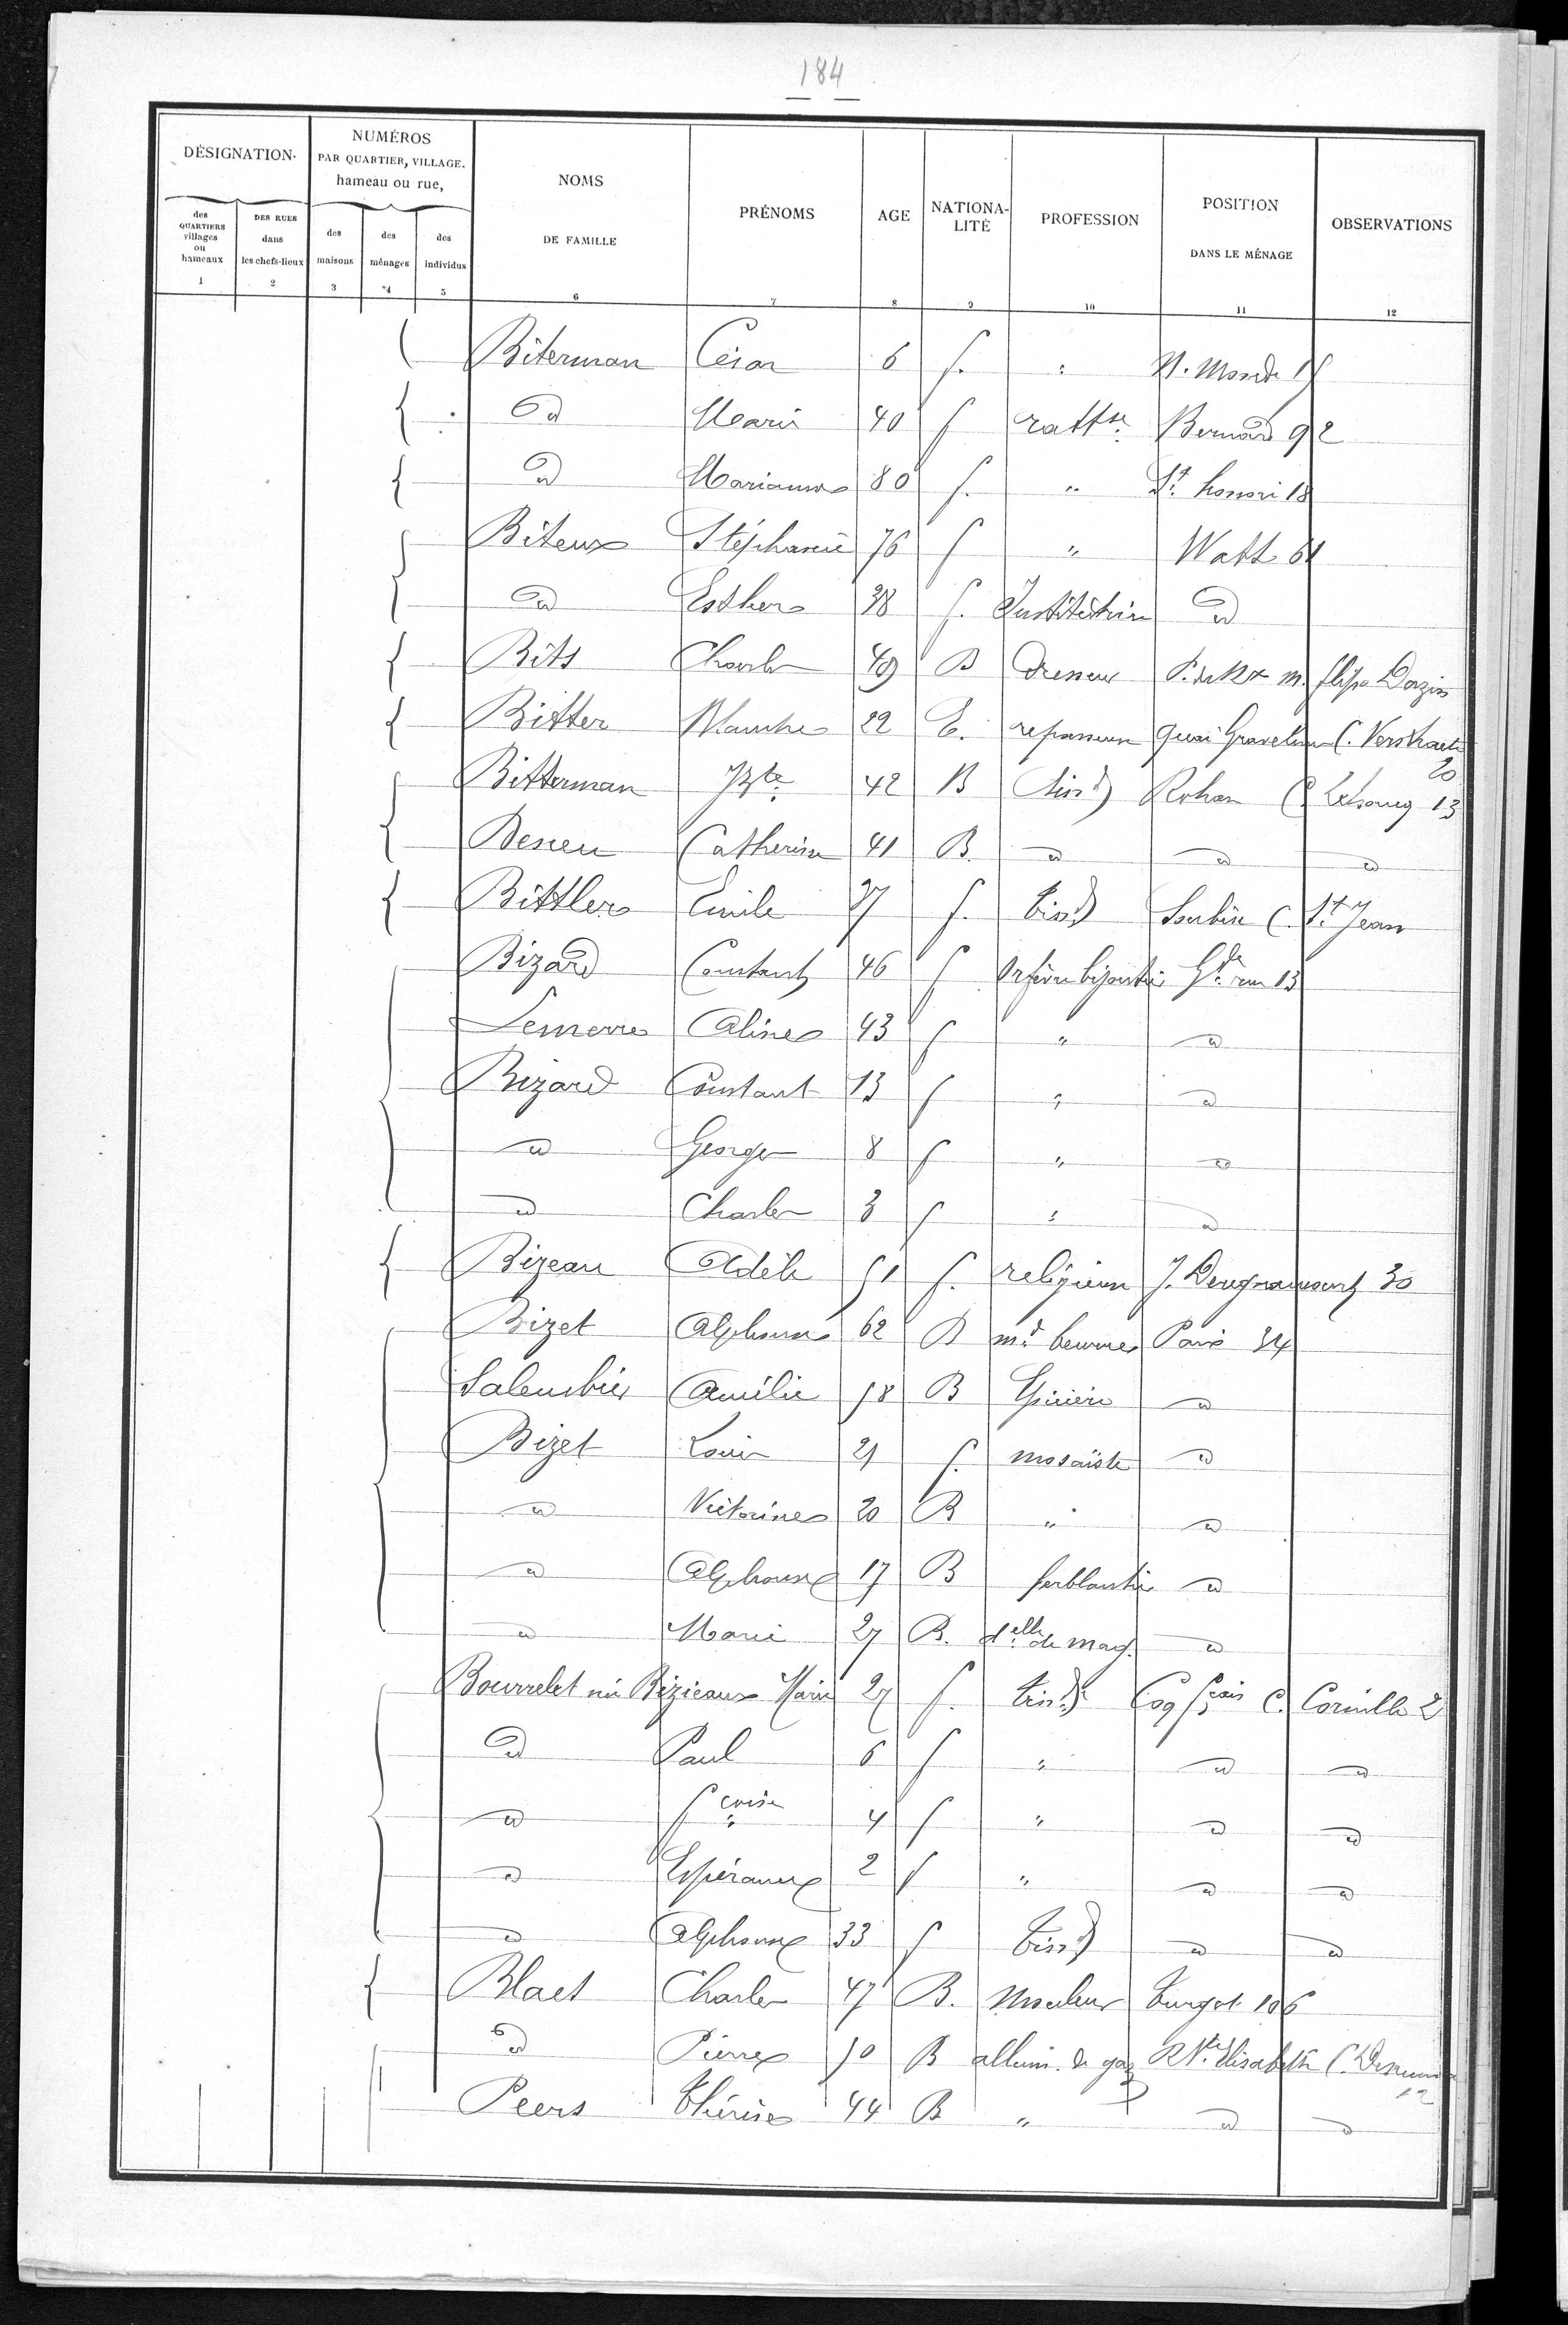 184
DÉSIGNATION.
NUMÉROS
PAR QUARTIER, VILLAGE.
hameau ou rue,
NOMS
DE FAMILLE
PRÉNOMS
AGE
NATIONA-
LITÉ
PROFESSION
POSITION
DANS LE MÉNAGE
OBSERVATIONS
des
QUARTIERS
villages
ou
hameaux
DES RUES
dans
les chefs-lieux
des
maisons
des
ménages
des
individus
1 2 3 4 5 6 7 8 9 10 11 12
Biterman César 6 f. "
d Marie 40 f ratt.se Bernard 92
d Marianne 80 f. " St. honoré 18
Biteux Stéphanie 76 f " Watt 61
d Esther 38 f. Institutrice d
Bits Charles 49 B
Bitter Blanche 22 repasseuse quai
Bitterman Bte 42 B tissd Rohan C. 13
Catherine 41 B. d d d
Bittler Emile f. tissd C. St. Jean
Bizard Constant 46 f Orfèvre bijoutier Gde rue 13
Lemerre Aline 43 f " d
Bizard Constant 13 f " d
d George 8 f " d
d Charles 3 f " d
Bizeau Adèle 51 f. religieuse J. 30
Bizet Alphonse 62 B md beurre Paris 34
Salembier Amélie 58 B Epicière d
Bizet Louis 21 f. mosaïste d
d Victorine 20 B " d
d Alphonse 17 B ferblantier d
d Marie 27 B. delle de mag. d
Bourrelet née Bizieaux Marie 27 f. tissd Coq fçais C. Corneille 2
d Paul 6 f " d d
d fcoise 4 f " d d
d Espérance 2 f " d d
d Alphonse 33 f tissd d d
Blaes Charles 47 B. Mouleur Turgot 106
d Pierre 50 B allum. de gaz R Ste Elisabeth C. 12
Peers Thérèse 44 B " d d